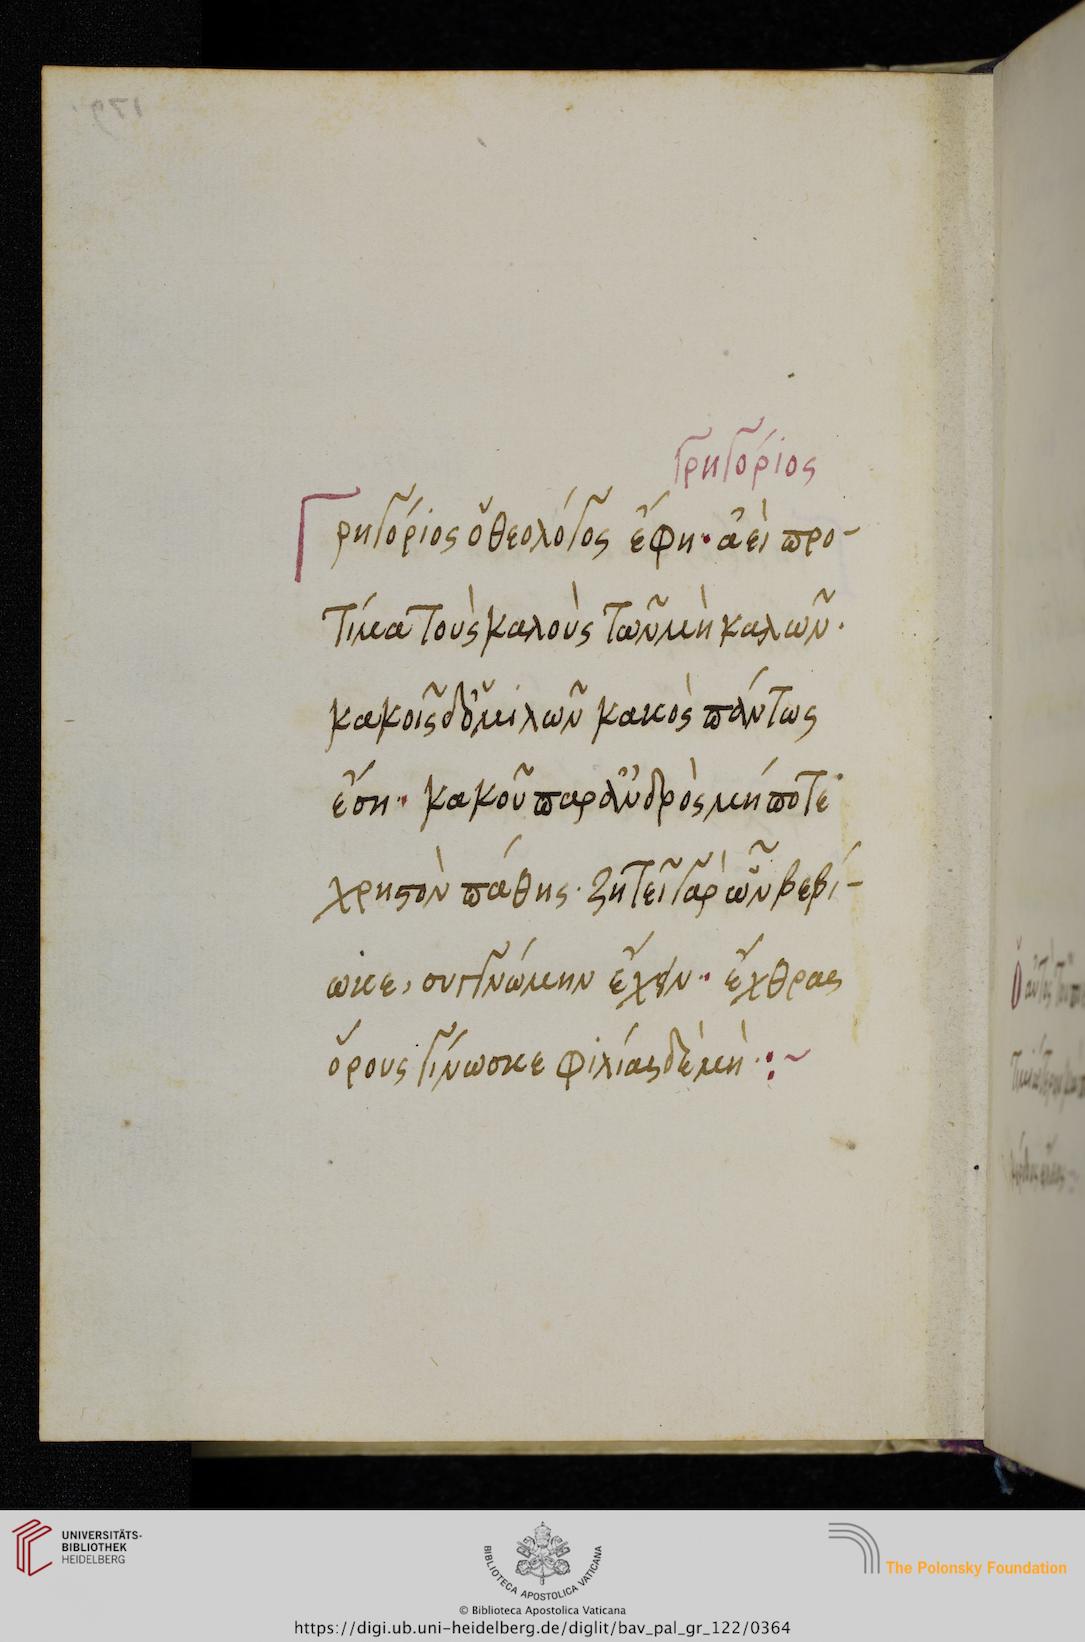 179
Γρηγόριος
Γρηγόριος ὁ θεολόγος ἔφη· ἀεὶ προ-
τίμα τοὺς καλοὺς τῶν μὴ καλῶν.
κακοῖς δ' ὁμιλῶν κακὸς πάντως
ἔση· κακοῦ παρ' ἀνδρὸς μήποτε
χρηστὸν πάθης· ζητεῖ γὰρ ὧν βεβί-
ωκε, συγγνώμην ἔχειν· ἔχθρας
ὅρους γίνωσκε φιλίας δὲ μή :~
UNIVERSITÄTS-
BIBLIOTHEK
HEIDELBERG
BIBLIOTECA APOSTOLICA VATICANA
The Polonsky Foundation
© Biblioteca Apostolica Vaticana
https://digi.ub.uni-heidelberg.de/diglit/bav_pal_gr_122/0364